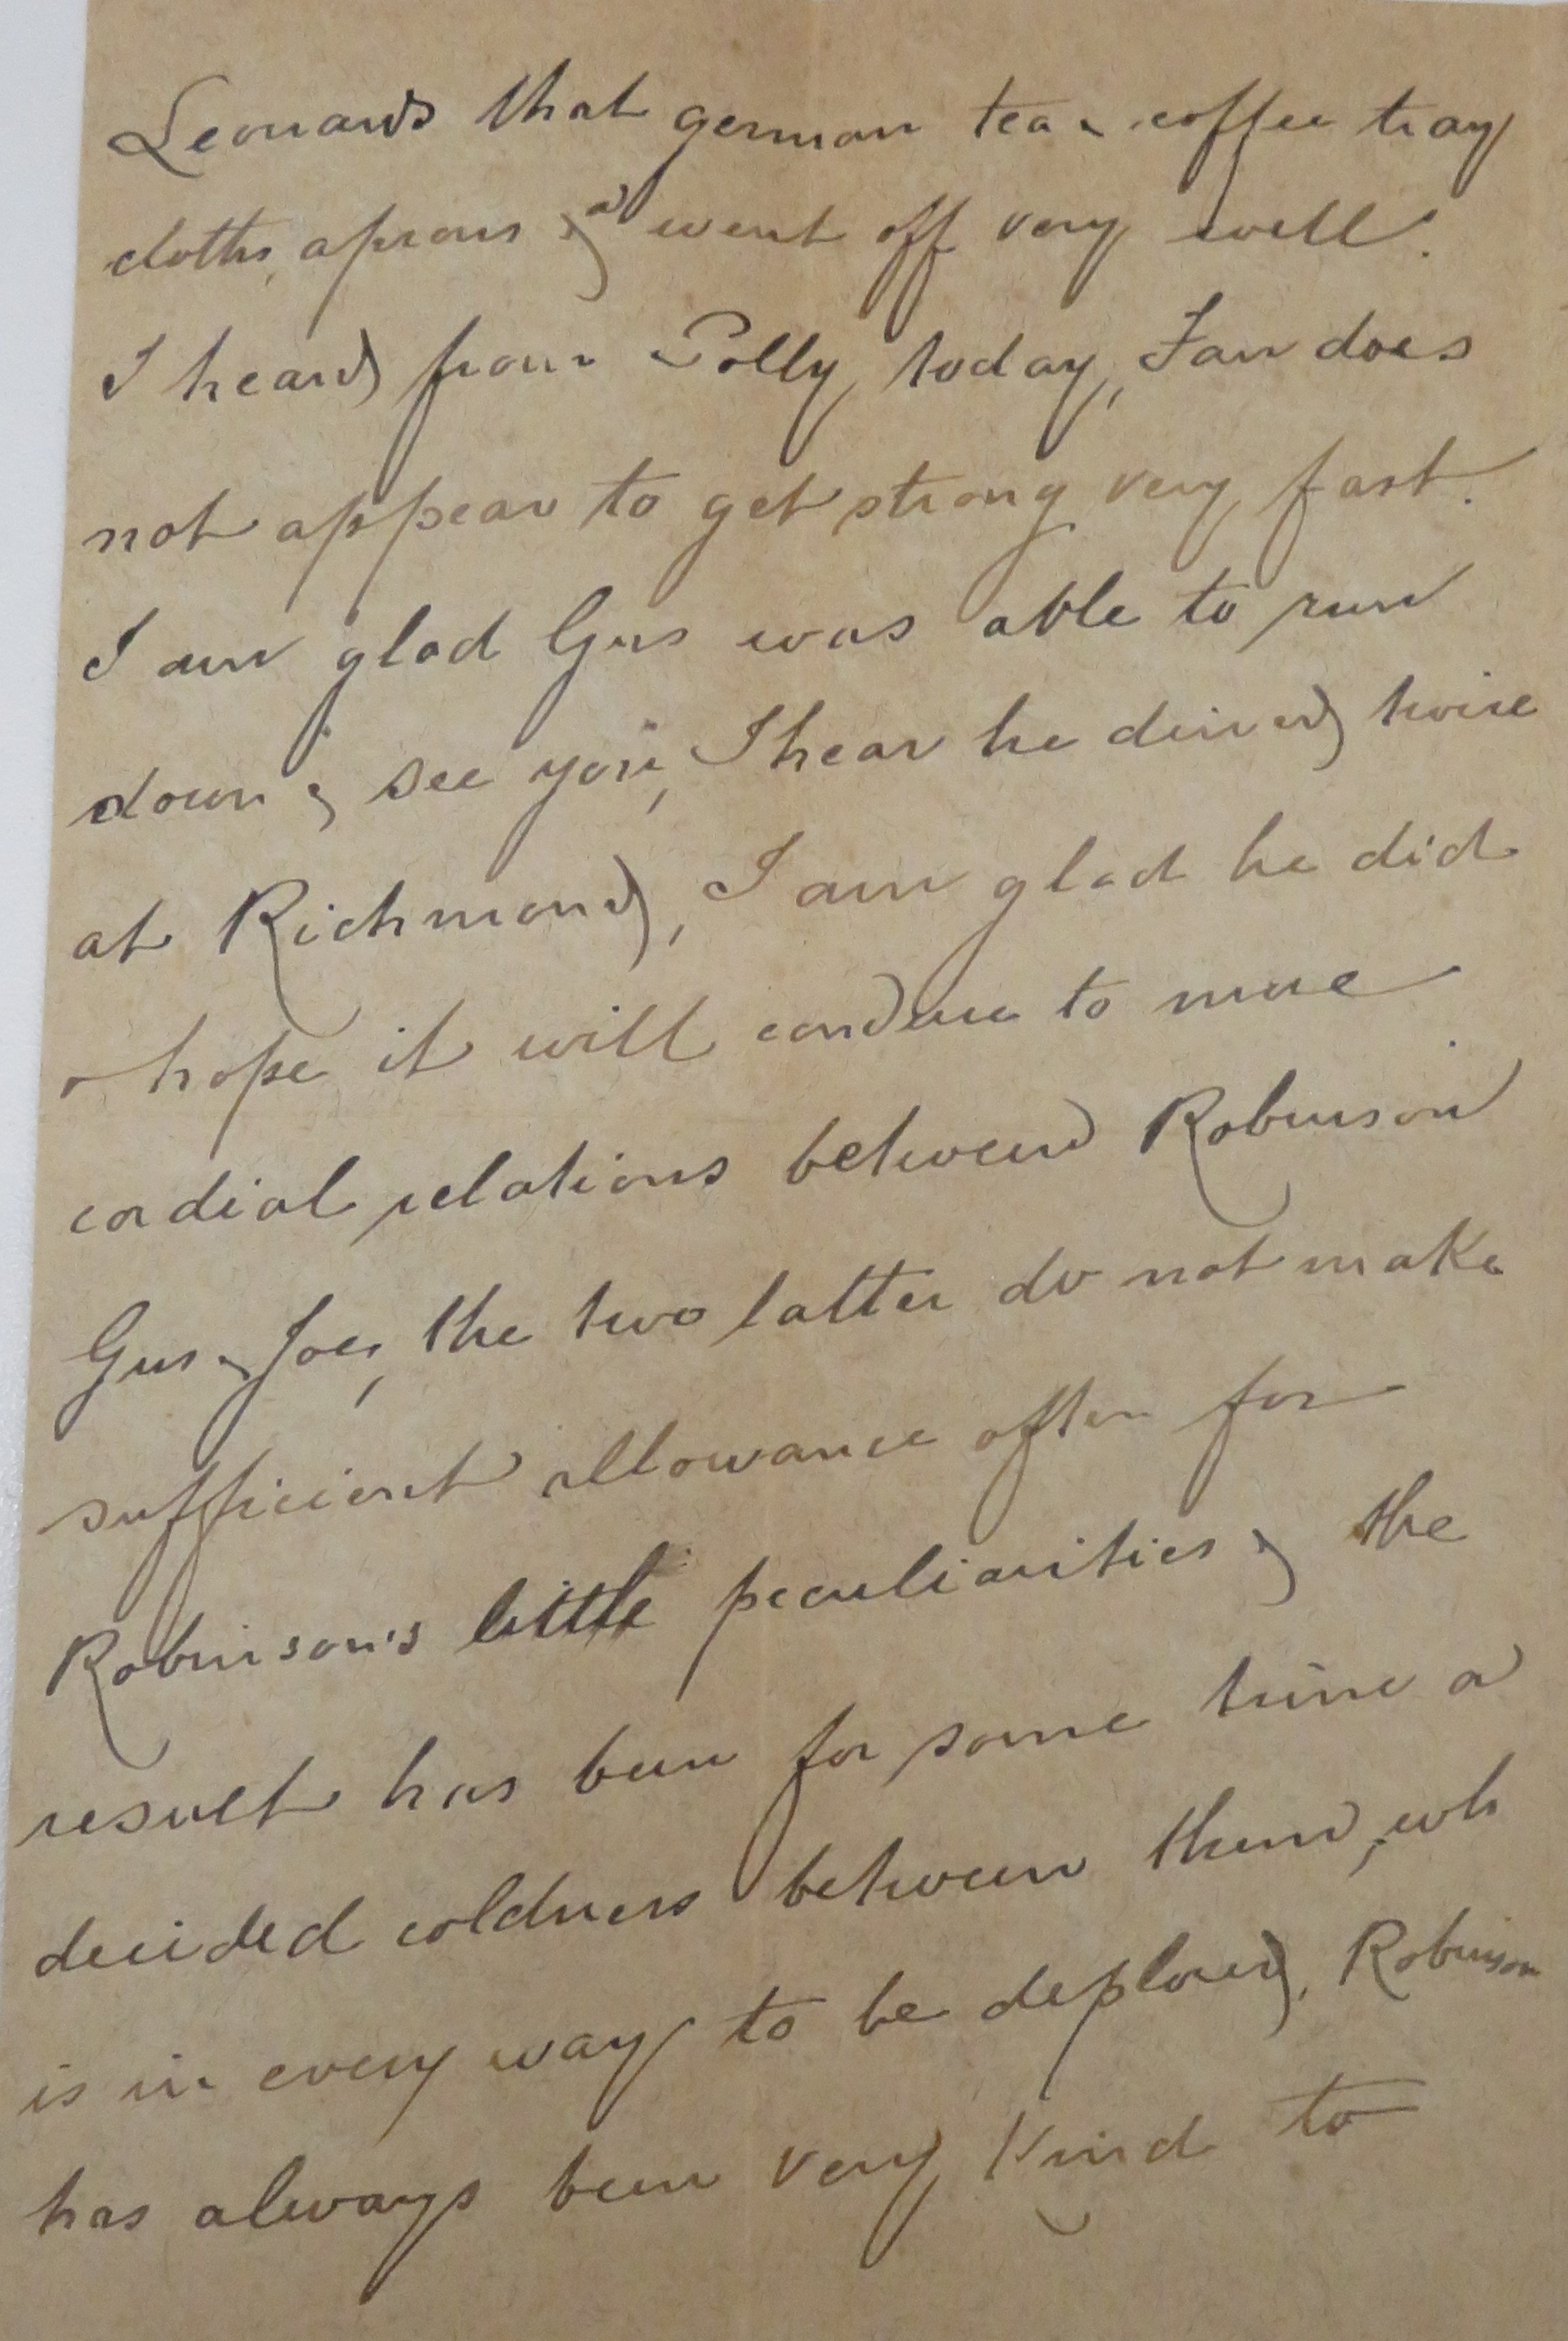 Leonards that german tea & coffee tray
cloths, aprons & went off very well.
I heard from Polly today, Fan does
not appear to get strong very fast.
I am glad Gus was able to run
down & see you, I hear he dined twice
at Richmond, I am glad he did
& hope it will conduce to more
cordial relations between Robinson
Gus & Joe, the two latter do not make
sufficient allowance often for
Robinson's little peculiarities & the
result has been for some time a
decided coldness between them, wh
is in every way to be deplored, Robinson
has always been very kind to